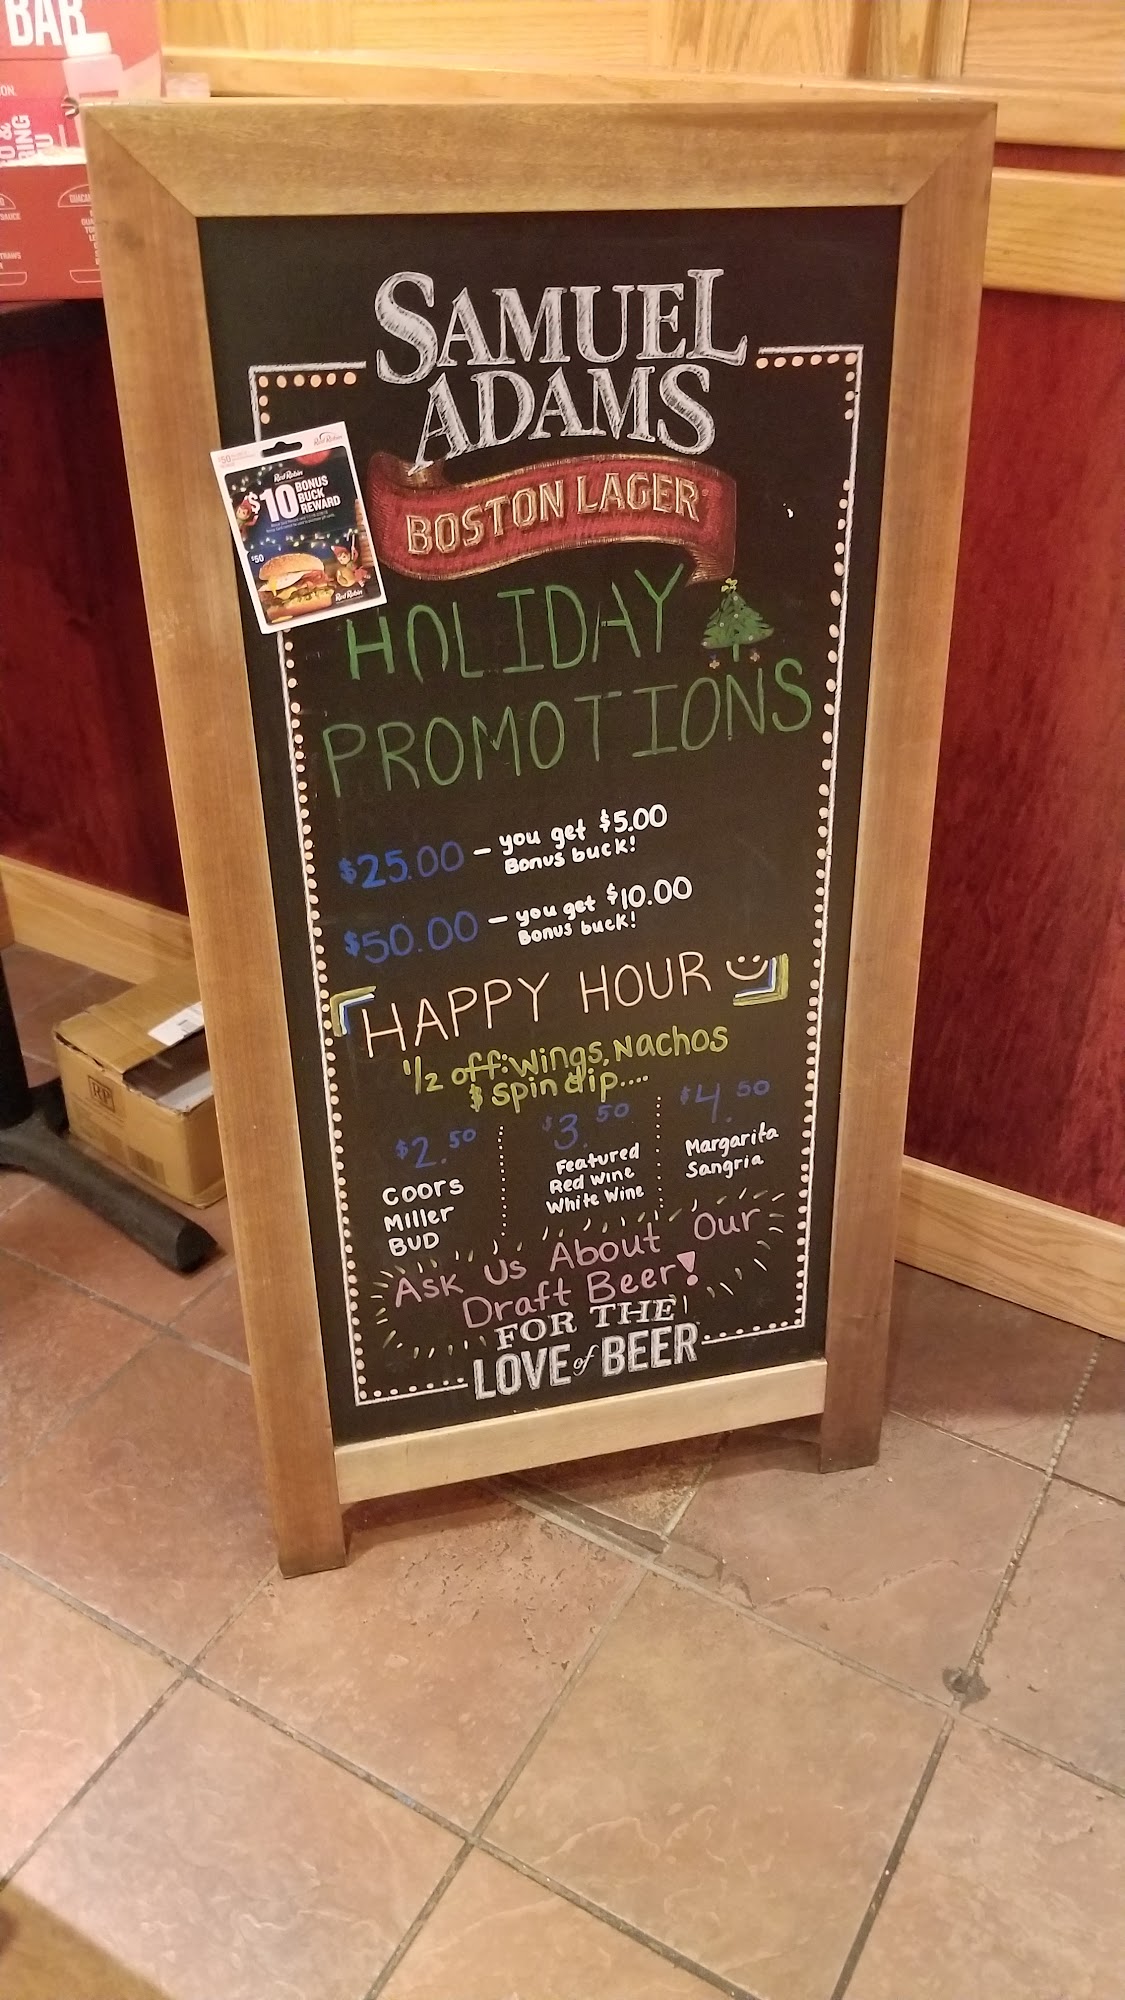 BAR
SAMUEL
ADAMS
BOSTON LAGER
$50
Red Robin
Red Robin
$10 BONUS
BUCK
REWARD
$50
Red Robin
HOLIDAY
PROMOTIONS
$25.00 – you get $5.00
Bonus buck!
$50.00 – you get $10.00
Bonus buck!
HAPPY HOUR
1/2 off: Wings, Nachos
$ Spin dip....
$2.50
Coors
Miller
BUD
$3.50
Featured
Red Wine
White Wine
$4.50
Margarita
Sangria
Ask Us About Our
Draft Beer!
FOR THE
LOVE of BEER
RP